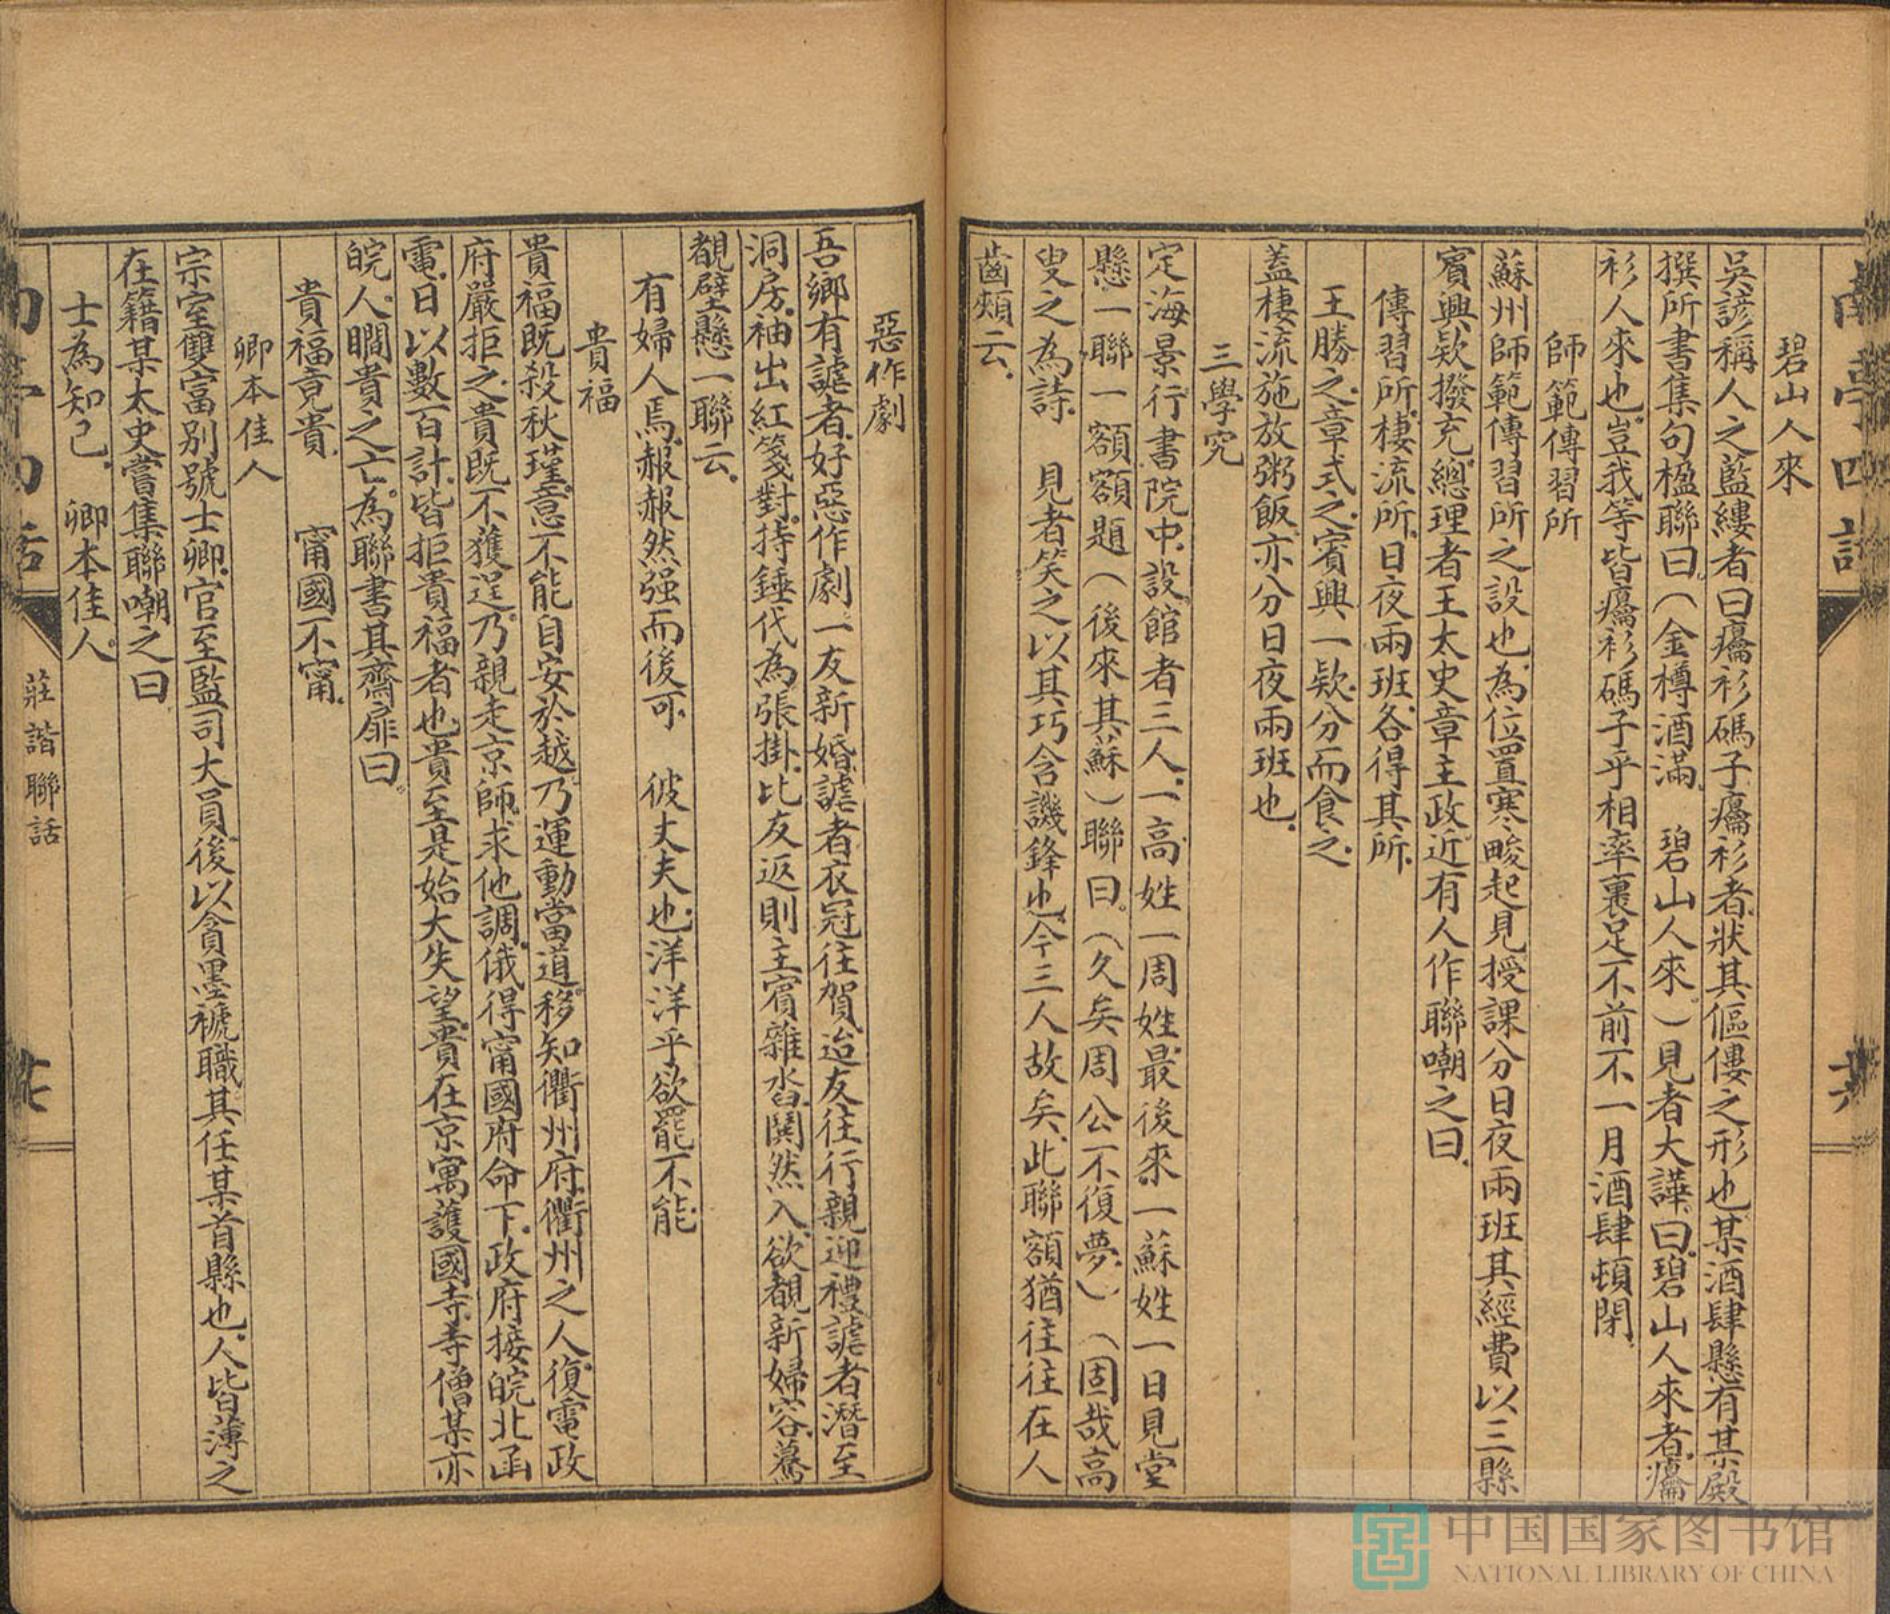 碧山人來
吳諺稱人之藍縷者曰癟衫碼子癟衫者狀其傴僂之形也某酒肆懸有某殿
撰所書集句楹聯曰（金樽酒滿　碧山人來）見者大譁曰碧山人來者癟
衫人來也豈我等皆癟衫碼子乎相率裹足不前不一月酒肆頓閉
師範傳習所
蘇州師範傳習所之設也為位置寒畯起見授課分日夜兩班其經費以三縣
賓興欵撥充總理者王太史章主政近有人作聯嘲之曰
傳習所棲流所日夜兩班各得其所
王勝之章式之賓興一欵分而食之
蓋棲流施放粥飯亦分日夜兩班也
三學究
定海景行書院中設館者三人一高姓一周姓最後來一蘇姓一日見堂
懸一聯一額額題（後來其蘇）聯曰（久矣周公不復夢）（固哉高
叟之為詩　見者笑之以其巧含譏鋒也今三人故矣此聯額猶往往在人
齒頰云
惡作劇
吾鄉有謔者好惡作劇一友新婚謔者衣冠往賀迨友往行親迎禮謔者潛至
洞房袖出紅箋對持錘代為張掛比友返則主賓雜沓閧然入欲覩新婦容驀
覩壁懸一聯云
有婦人焉赧赧然强而後可　彼丈夫也洋洋乎欲罷不能
貴福
貴福既殺秋瑾意不能自安於越乃運動當道移知衢州府衢州之人復電政
府嚴拒之貴既不獲逞乃親走京師求他調俄得甯國府命下政府接皖北函
電日以數百計皆拒貴福者也貴至是始大失望貴在京寓護國寺寺僧某亦
皖人瞯貴之亡為聯書其齋扉曰
貴福竟貴　甯國不甯
卿本佳人
宗室雙富別號士卿官至監司大員後以貪墨褫職其任某首縣也人皆薄之
在籍某太史嘗集聯嘲之曰
士為知己　卿本佳人
莊諧聯話
中国国家图书馆
NATIONAL LIBRARY OF CHINA